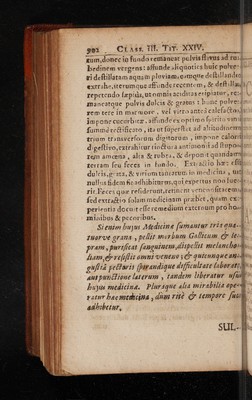 902 CLASS. III. TIT. XXIV.
rum, donec in fundo remaneat pulvis fixus ad ru-
bedinem vergens: affunde aliquoties huic pulve-
ri destillatam aquam pluviam, eamque destillando
extrahe, iterumque effunde recentem, & destilla,
repetendo sæpius, ut omnis aciditas eripiatur, re-
maneatque pulvis dulcis & gratus: huic pulve-
rem tere in marmore, vel vitro antea calefacto,
impone cucurbitæ, affundens optimo spiritu vini
summè rectificato, ita ut superstet ad altitudinem
trium transversorum digitorum, impone calori
digestivo, extrahitur tinctura antimonii ad stupo-
rem amœna, alta & rubea, & deponit quandam
terram seu feces in fundo. Extractio hæc est
dulcis, grata, & virium tantarum in medicina, ut
nullus fidem sit adhibiturus, qui expertus non fue-
rit. Feces quæ resederunt, retinent venenositatem,
sed extractio solam medicinam præbet, quam ex-
perientia docuit esse remedium externum pro ho-
minibus & pecoribus.
Si enim hujus Medicinæ sumantur tria qua-
tuorve grana, pellit morbum Gallicum & le-
pram, purificat sanguinem, dispellit melancho-
liam, & resistit omni veneno: & quicunque an-
gustia pectoris spirandique difficultate laborat,
aut punctione laterum, tandem liberatur usu
hujus medicinæ. Plurséque alia mirabilia ope-
ratur hæc medicina, dum ritè & tempore suo
adhibetur.
SUL-